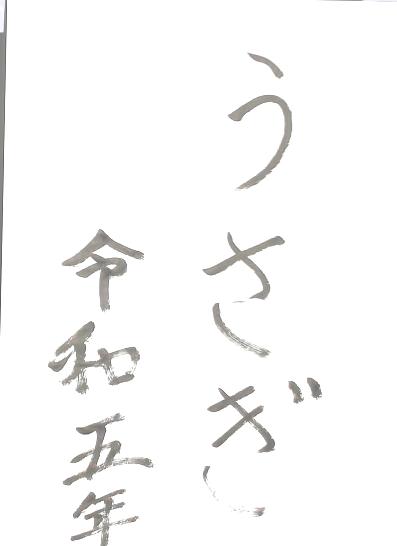 うさぎ
令和五年